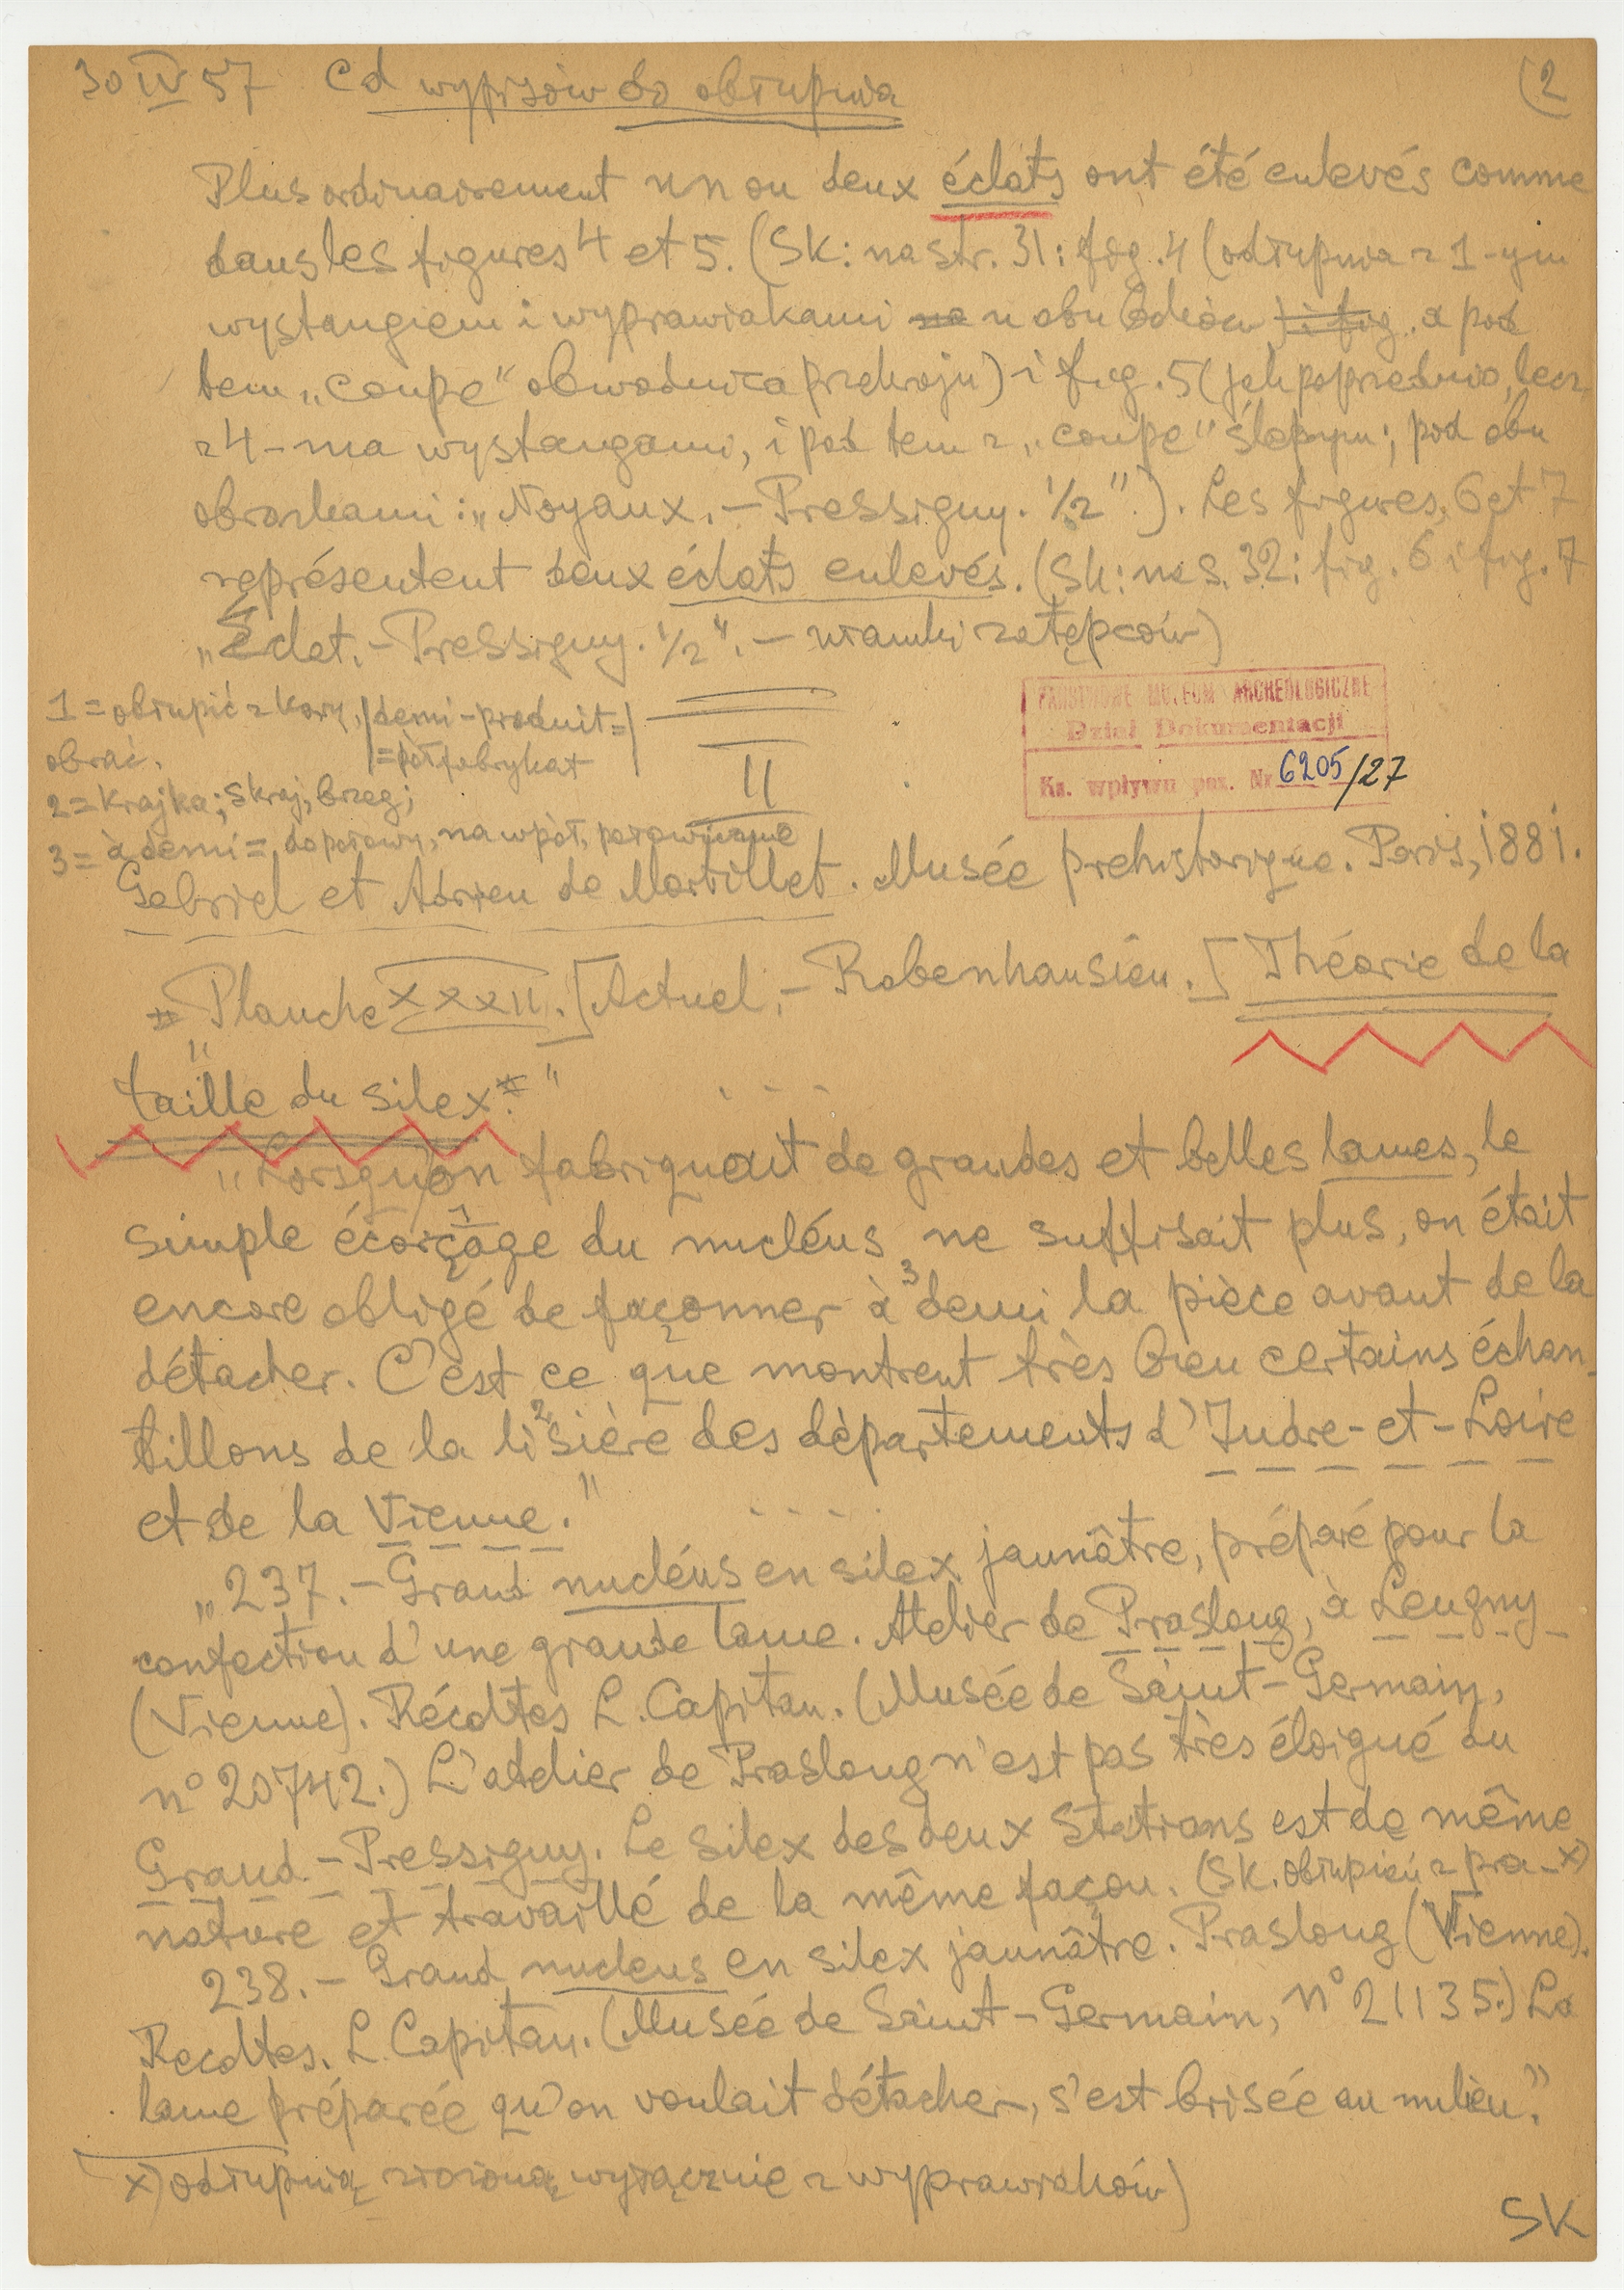 30 IV 57 Cd wypisów do obłupnia
(2
Plus ordinairement un ou deux éclats ont été enlevés comme
dans les figures 4 et 5. (SK: na str. 31: fig. 4 (odłupnia z 1-ym
wystangiem i wyprawiakami u obu boków a pod
tem „coupe" obwodnica przekroju) i fig. 5 (jak poprzednio, lecz
z 4-ma wystangami, i pod tem z „coupe" ślepym; pod obu
obrazkami: „Noyaux. - Pressigny. 1/2"). Les figures, 6 et 7
représentent deux éclats enlevés. (Sk: na s. 32: fig. 6 i fig. 7
„Éclat. - Pressigny. 1/2". - ułamki zatępców)
PAŃSTWOWE MUZEUM ARCHEOLOGICZNE
Dział Dokumentacji
Ks. wpływu poz. Nr 6205/27
1 = obłupić z kory, |demi-produit =|
obrać. |= półfabrykat
2 = Krajka; skraj, brzeg;
3 = à demi = do połowy, na wpół, połowicznie
II
Gabriel et Adrien de Mortillet. Musée préhistorique. Paris, 1881.
„Planche XXXII. [Actuel. - Robenhausien.] Théorie de la
taille du silex."
....
„Lorsqu'on fabriquait de grandes et belles lames, le
simple écorçage 1 du nucléus ne suffisait plus, on était
encore obligé de façonner à 3 demi la pièce avant de la
détacher. C'est ce que montrent très bien certains échan-
tillons de la lisière 2 des départements d'Indre-et-Loire
et de la Vienne."
....
„237. - Grand nucléus en silex jaunâtre, préparé pour la
confection d'une grande lame. Atelier de Praslong, à Leugny
(Vienne). Récoltes L. Capitan. (Musée de Saint-Germain,
n° 20742.) L'atelier de Praslong n'est pas très éloigné du
Grand-Pressigny. Le silex des deux stations est de même
nature et travaillé de la même façon. (SK. obłupień z pra- x)
238. - Grand nucleus en silex jaunâtre. Praslong (Vienne).
Recoltes. L. Capitan. (Musée de Saint-Germain, n° 21135.) La
lame préparée qu'on voulait détacher, s'est brisée au milieu."
x) odłupnią złożoną wyłącznie z wyprawiaków)
SK